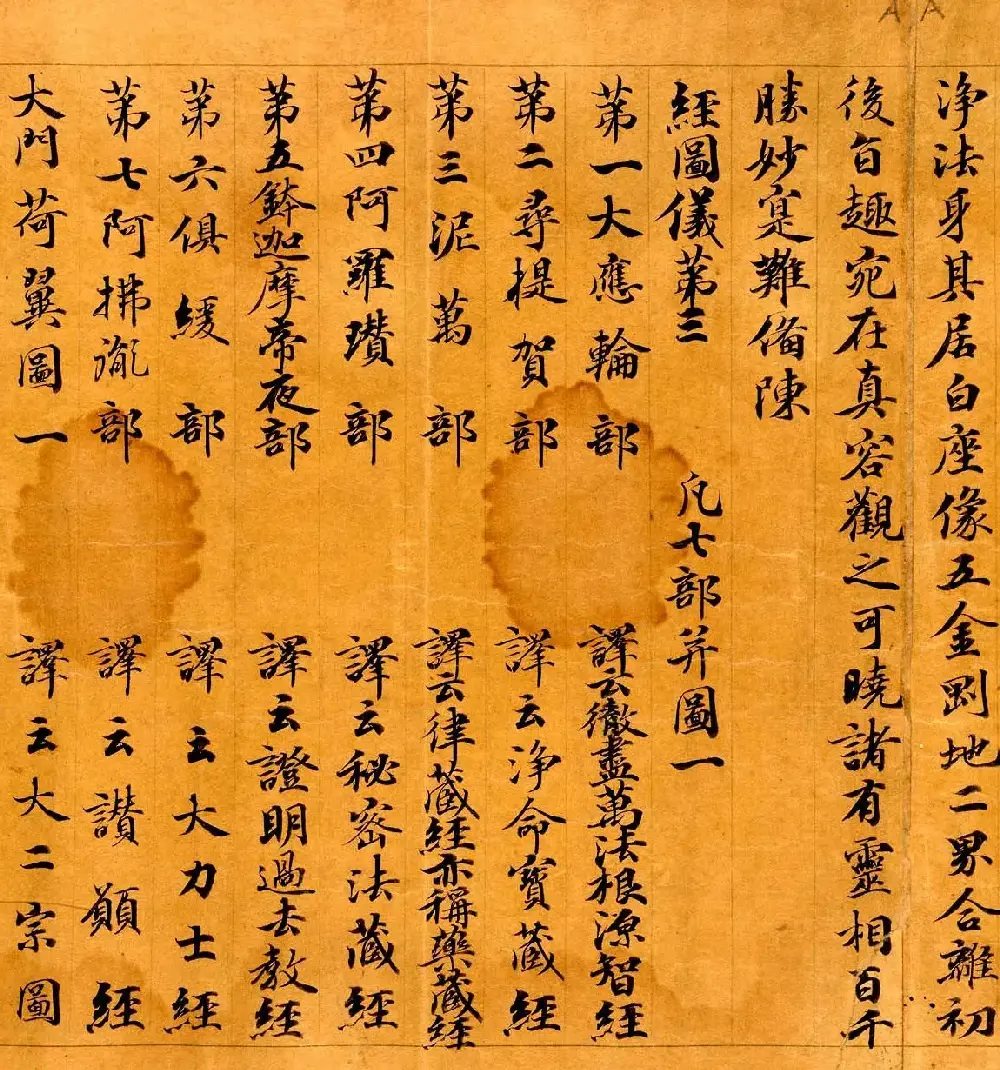 浄法身其居白座像五金剛地二界合離初
後旨趣宛在真容觀之可曉諸有靈相百千
勝妙寔難備陳
經圖儀第三 凡七部并圖一
第一大應輪部 譯云徹盡萬法根源智經
第二尋提賀部 譯云浄命寶藏經
第三泥萬部 譯云律藏經亦稱藥藏經
第四阿羅瓚部 譯云秘密法藏經
第五鉢迦摩帝夜部 譯云證明過去教經
第六俱緩部 譯云大力士經
第七阿拂胤部 譯云讚願經
大門荷翼圖一 譯云大二宗圖